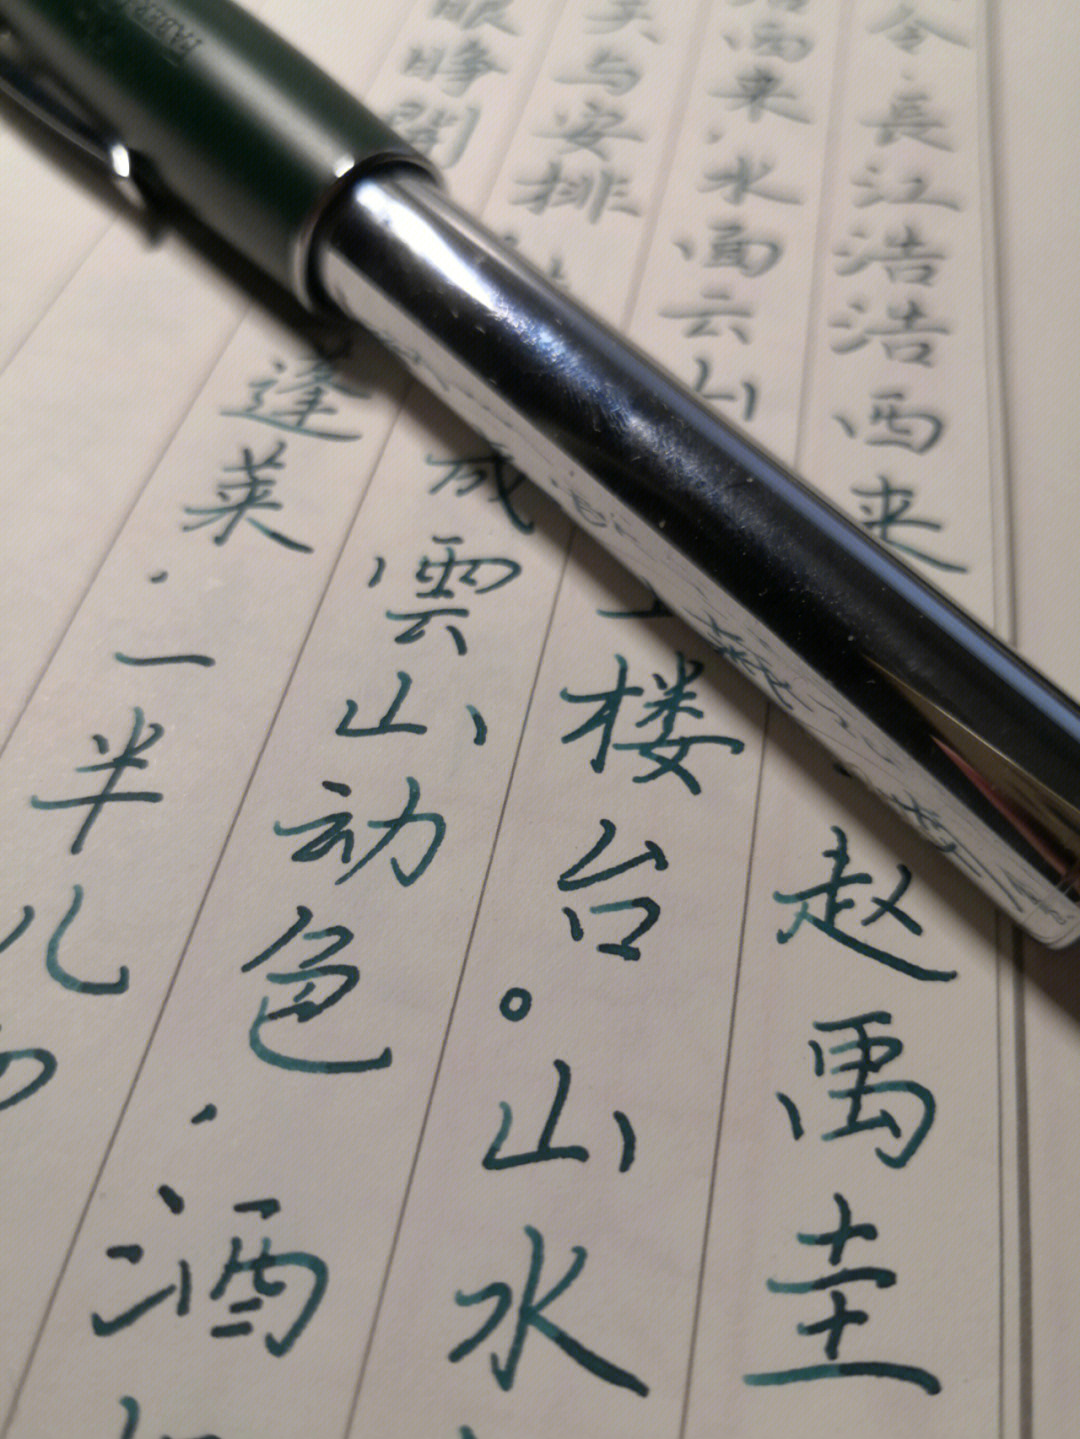 令·長江浩浩西来 赵禹圭
浩西来，水面云山 楼台。山水
天与安排 成雲山动色，酒
眼睁開 蓬莱，一半儿